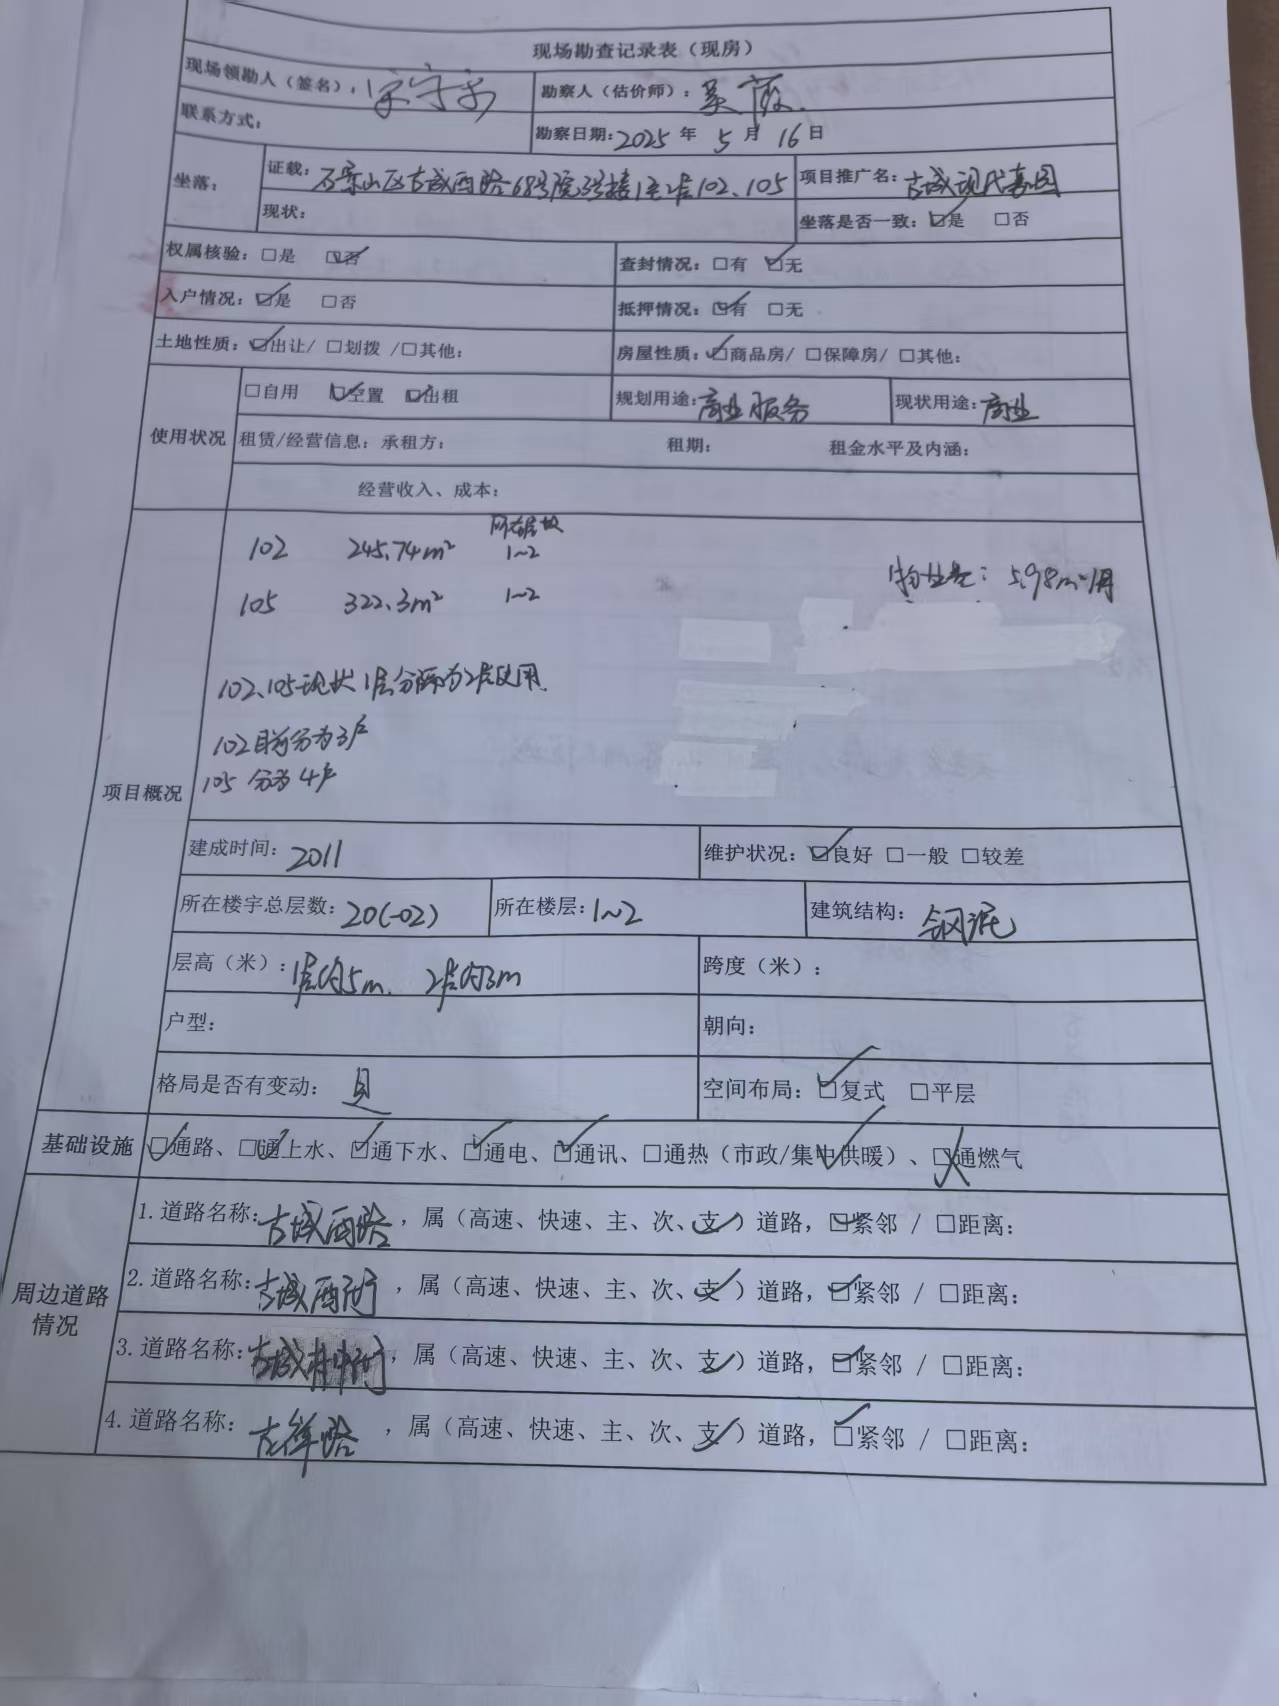 现场勘查记录表（现房）
现场领勘人（签名）：宋守 勘察人（估价师）：吴薇
联系方式： 勘察日期：2025年 5月 16日
坐落： 证载：石景山区古城西路68号院3号楼1至2层102、105 项目推广名：古城现代嘉园
现状： 坐落是否一致：☑是 □否
权属核验：□是 ☑否 查封情况：□有 ☑无
入户情况：☑是 □否 抵押情况：☑有 □无
土地性质：☑出让/ □划拨 /□其他： 房屋性质：☑商品房/ □保障房/ □其他：
使用状况 □自用 ☑空置 ☑出租 规划用途：商业服务 现状用途：商业
租赁/经营信息：承租方： 租期： 租金水平及内涵：
经营收入、成本：
项目概况
所在层数
102 245.74m² 1~2
物业费：5.98m²·月
105 322.3m² 1~2
102、105现状1层分隔为2层使用
102目前分为3户
105 分为4户
建成时间：2011 维护状况：☑良好 □一般 □较差
所在楼宇总层数：20(-02) 所在楼层：1~2 建筑结构：钢混
层高（米）：1层约5m、2层约3m 跨度（米）：
户型： 朝向：
格局是否有变动：是 空间布局：☑复式 □平层
基础设施 ☑通路、☑通上水、☑通下水、☑通电、☑通讯、□通热（市政/集中供暖）、□通燃气
周边道路情况
1.道路名称：古城西路，属（高速、快速、主、次、支）道路，☑紧邻 / □距离：
2.道路名称：古城西街，属（高速、快速、主、次、支）道路，☑紧邻 / □距离：
3.道路名称：古城街，属（高速、快速、主、次、支）道路，☑紧邻 / □距离：
4.道路名称：古路，属（高速、快速、主、次、支）道路，☑紧邻 / □距离：